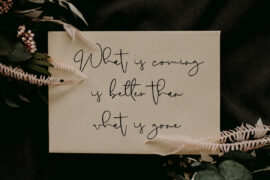 What is coming
is better than
what is gone